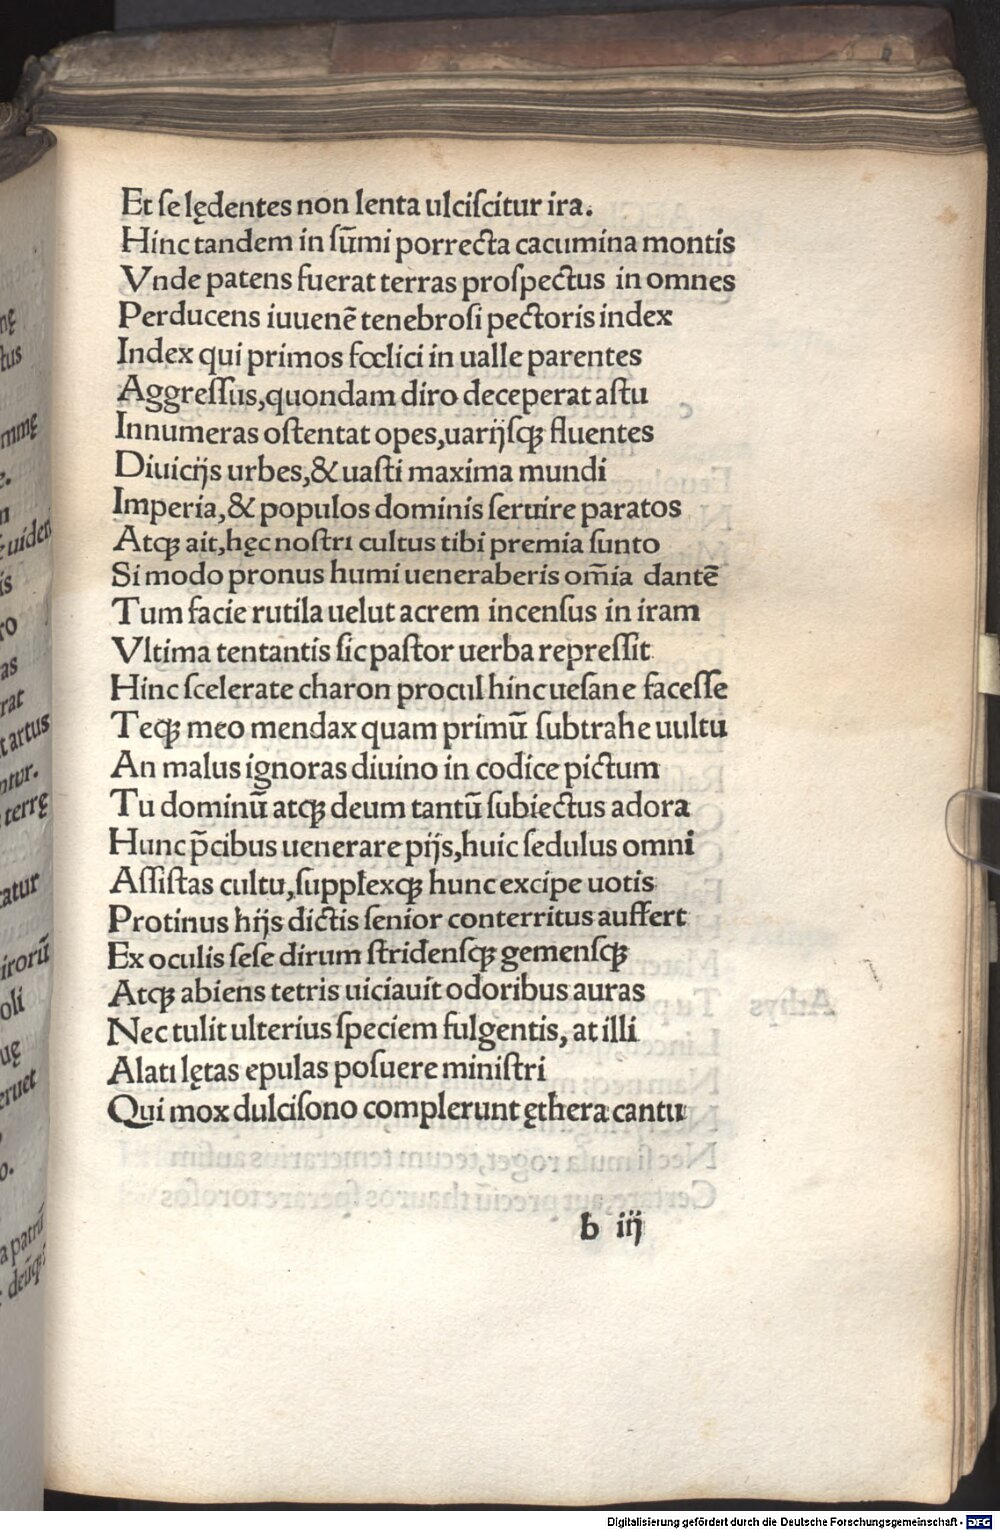 Et ſe lędentes non lenta ulciſcitur ira.
Hinc tandem in ſūmi porrecta cacumina montis
Vnde patens fuerat terras proſpectus in omnes
Perducens iuuenē tenebroſi pectoris index
Index qui primos fœlici in ualle parentes
Aggreſſus,quondam diro deceperat aſtu
Innumeras oſtentat opes,uarijſqꝫ fluentes
Diuicijs urbes,& uaſti maxima mundi
Imperia,& populos dominis ſeruire paratos
Atqꝫ ait,hęc noſtri cultus tibi premia ſunto
Si modo pronus humi ueneraberis om̄ia dantē
Tum facie rutila uelut acrem incenſus in iram
Vltima tentantis ſic paſtor uerba repreſſit
Hinc ſcelerate charon procul hinc ueſane faceſſe
Teqꝫ meo mendax quam primū ſubtrahe uultu
An malus ignoras diuino in codice pictum
Tu dominū atqꝫ deum tantū ſubiectus adora
Hunc p̄cibus uenerare pijs,huic ſedulus omni
Aſſiſtas cultu,ſupplexqꝫ hunc excipe uotis
Protinus hijs dictis ſenior conterritus auffert
Ex oculis ſeſe dirum ſtridenſqꝫ gemenſqꝫ
Atqꝫ abiens tetris uiciauit odoribus auras
Nec tulit ulterius ſpeciem fulgentis, at illi
Alati lętas epulas poſuere miniſtri
Qui mox dulciſono complerunt ęthera cantu
b iij
Digitalisierung gefördert durch die Deutsche Forschungsgemeinschaft - DFG